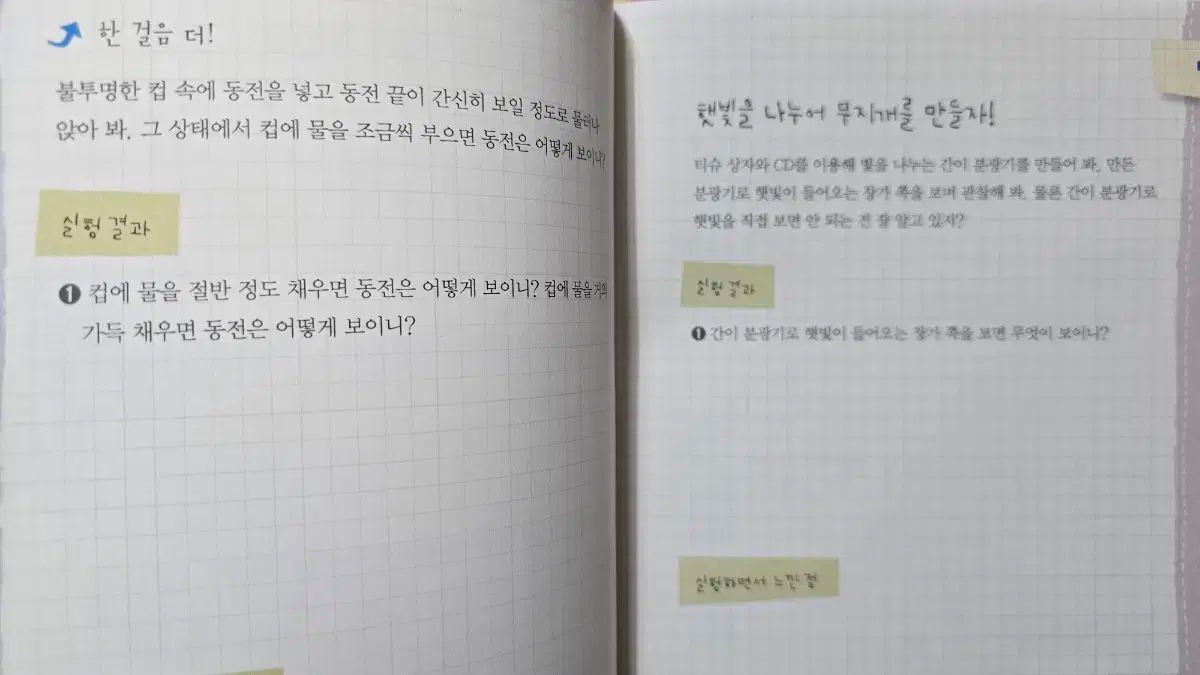 한 걸음 더!
불투명한 컵 속에 동전을 넣고 동전 끝이 간신히 보일 정도로 물러나
앉아 봐. 그 상태에서 컵에 물을 조금씩 부으면 동전은 어떻게 보이니?
실험 결과
❶ 컵에 물을 절반 정도 채우면 동전은 어떻게 보이니? 컵에 물을 거의
가득 채우면 동전은 어떻게 보이니?
햇빛을 나누어 무지개를 만들자!
티슈 상자와 CD를 이용해 빛을 나누는 간이 분광기를 만들어 봐. 만든
분광기로 햇빛이 들어오는 창가 쪽을 보며 관찰해 봐. 물론 간이 분광기로
햇빛을 직접 보면 안 되는 건 잘 알고 있지?
실험 결과
❶ 간이 분광기로 햇빛이 들어오는 창가 쪽을 보면 무엇이 보이니?
실험하면서 느낀 점